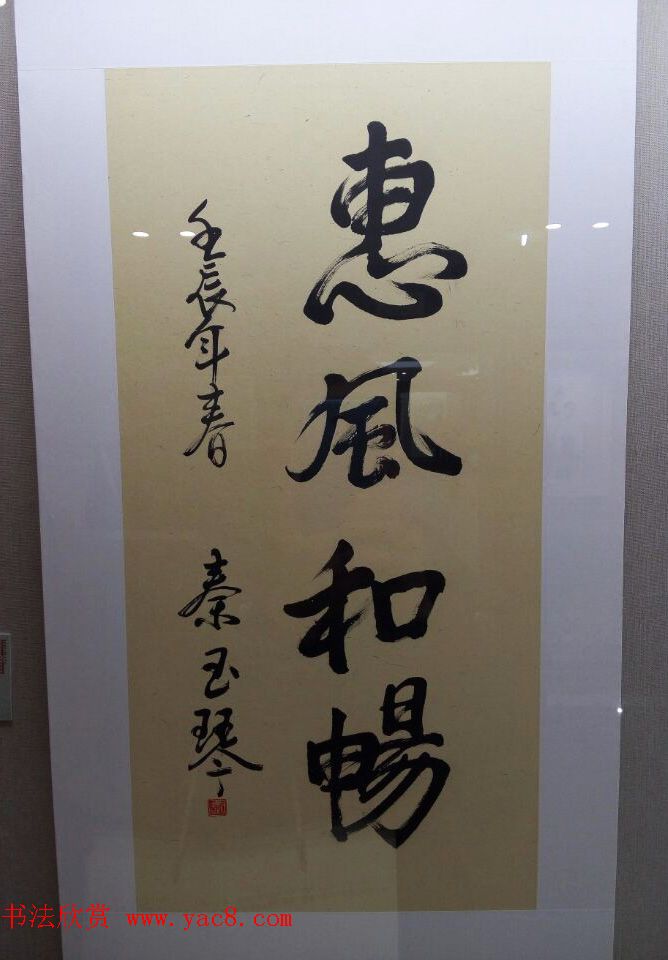 惠風和暢
壬辰年春 秦玉琴
书法欣赏 www.yac8.com